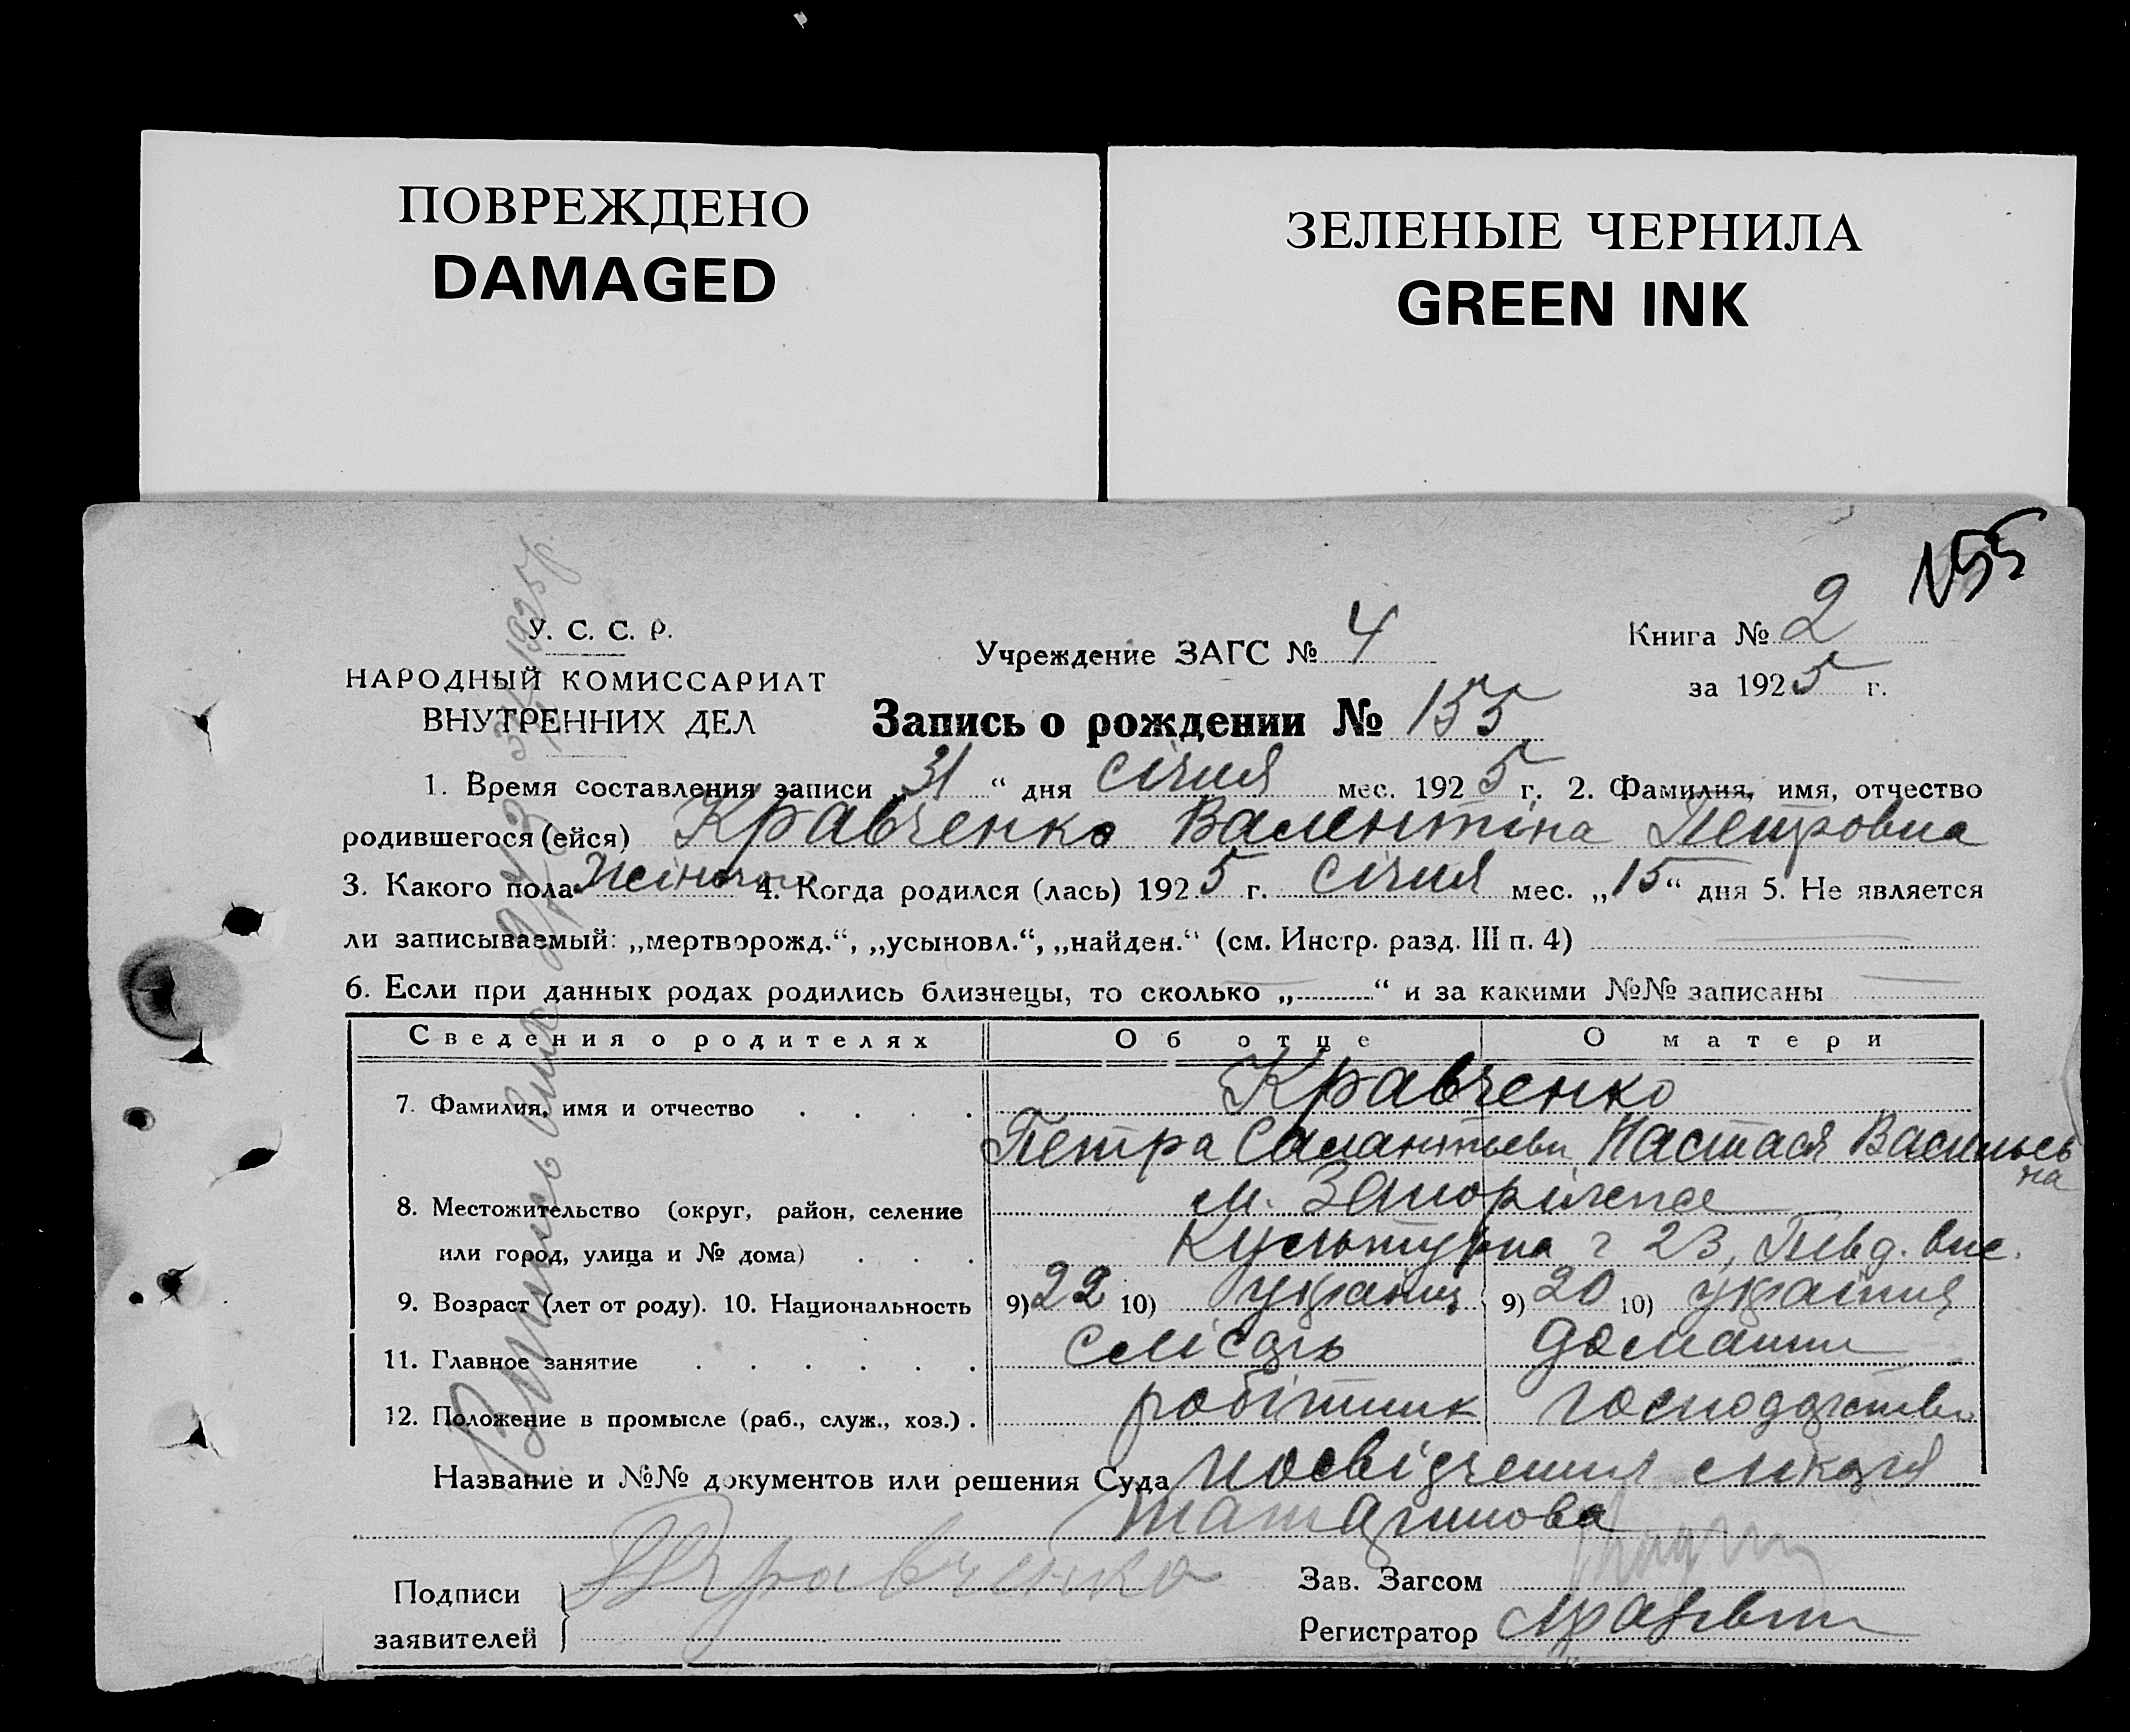 ПОВРЕЖДЕНО
DAMAGED
ЗЕЛЕНЫЕ ЧЕРНИЛА
GREEN INK
155
У. С. С. Р.
НАРОДНЫЙ КОМИССАРИАТ
ВНУТРЕННИХ ДЕЛ
Учреждение ЗАГС № 4
Книга № 2
за 1925 г.
Запись о рождении № 155
1. Время составления записи „31“ дня січня мес. 1925 г. 2. Фамилия, имя, отчество
родившегося (ейся) Кравченко Валентіна Петровна
3. Какого пола жіночого 4. Когда родился (лась) 1925 г. січня мес. „15“ дня 5. Не является
ли записываемый: „мертворожд.“, „усыновл.“, „найден.“ (см. Инстр. разд. III п. 4)
6. Если при данных родах родились близнецы, то сколько „ “ и за какими №№ записаны
Сведения о родителях Об отце О матери
7. Фамилия, имя и отчество Кравченко
Петра Настася Васильев
на
8. Местожительство (округ, район, селение м. Запоріжжя
или город, улица и № дома) Культурна ч 23, Півд. вис.
9. Возраст (лет от роду). 10. Национальность 9) 22 10) україн 9) 20 10) україн
11. Главное занятие слісарь домашн
12. Положение в промысле (раб., служ., хоз.) робітник господарство
Название и №№ документов или решения Суда посвідчення лікаря
Татаринова
Подписи
заявителей
Кравченко
Зав. Загсом
Регистратор
1925 р.